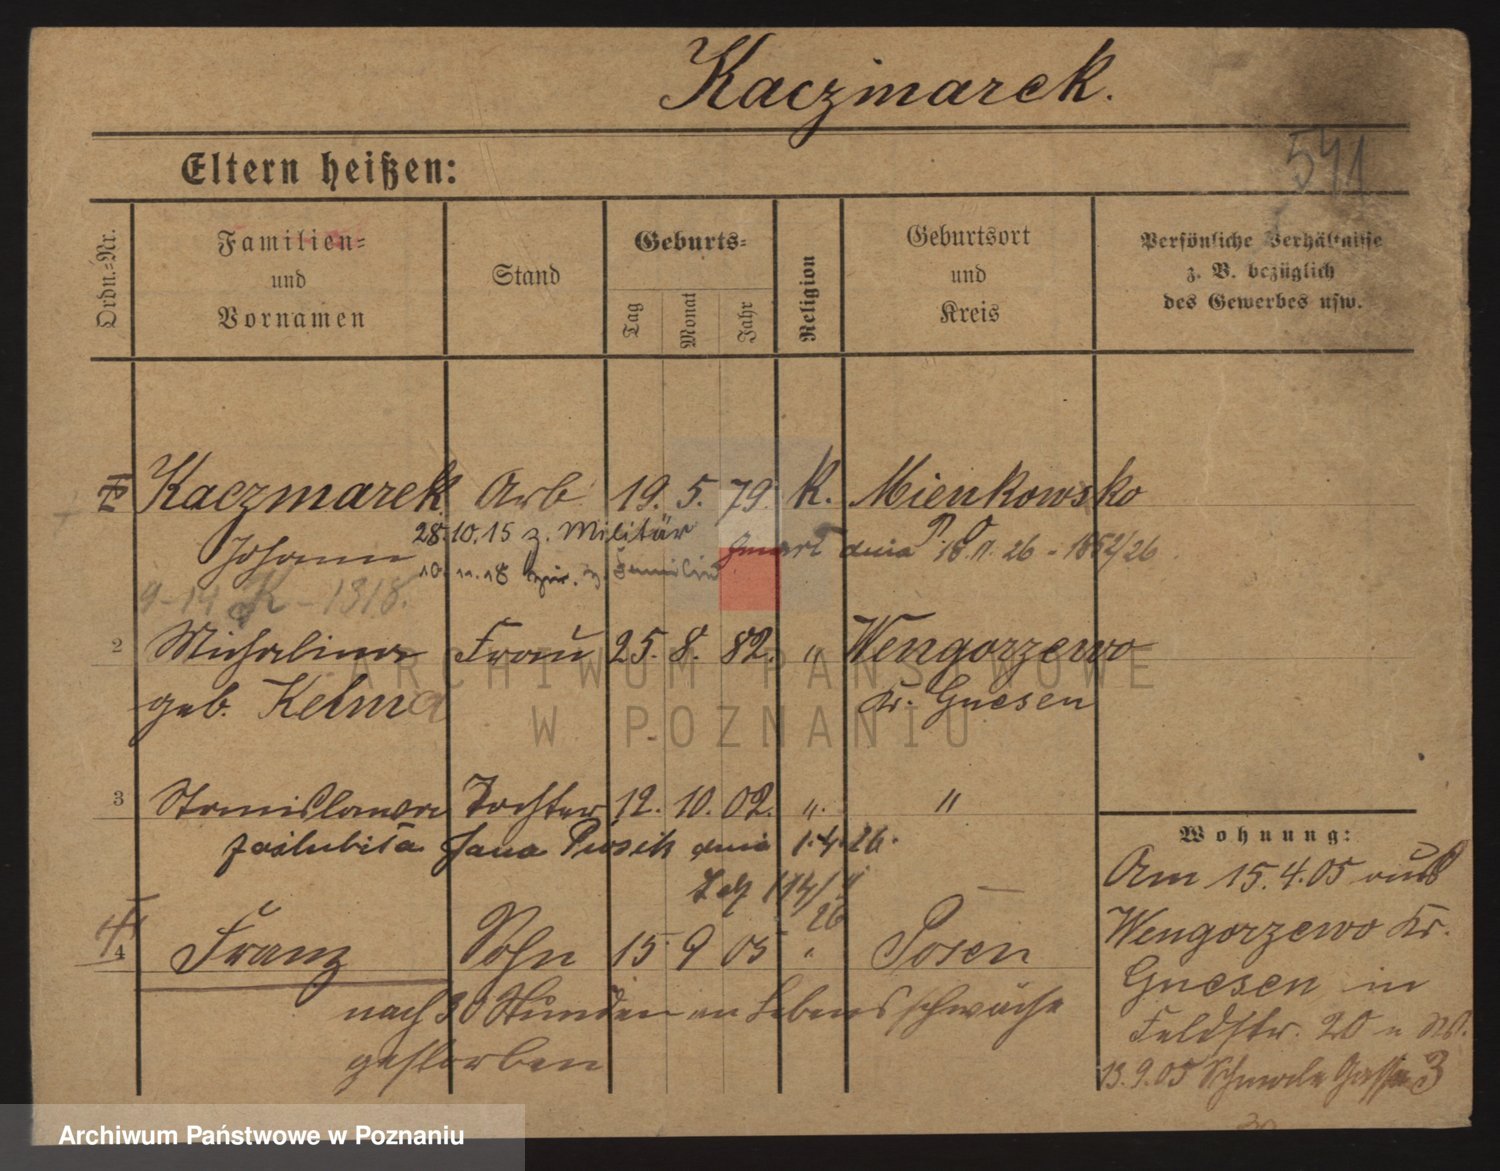 Kaczmarek.
541
Eltern heißen:
Ordn.-Nr.
Familien-
und
Vornamen
Stand
Geburts-
Tag
Monat
Jahr
Religion
Geburtsort
und
Kreis
Persönliche Verhältnisse
z. B. bezüglich
des Gewerbes usw.
Kaczmarek Arb 19. 5. 79. K. Mienkowsko
Johann 28.10.15 z. Militär
10.11.18 z. Familie zmarł dnia 18.11.26 - 1852/26
9-14 K-1318.
2 Michalina Frau 25. 8. 82. " Wengorzewo
geb. Kelma Kr. Gnesen
ARCHIWUM PAŃSTWOWE
W POZNANIU
3 Stanislawa Tochter 12. 10. 02. " "
zaślubiła Jana dnia 1.4.26.
4 Franz Sohn 15. 9 05 " Posen
nach 30 Stunden an Lebensschwäche
gestorben
Wohnung:
Am 15.4.05 aus
Wengorzewo Kr.
Gnesen in
Feldstr. 20
13.9.05 Gasse 3
Archiwum Państwowe w Poznaniu